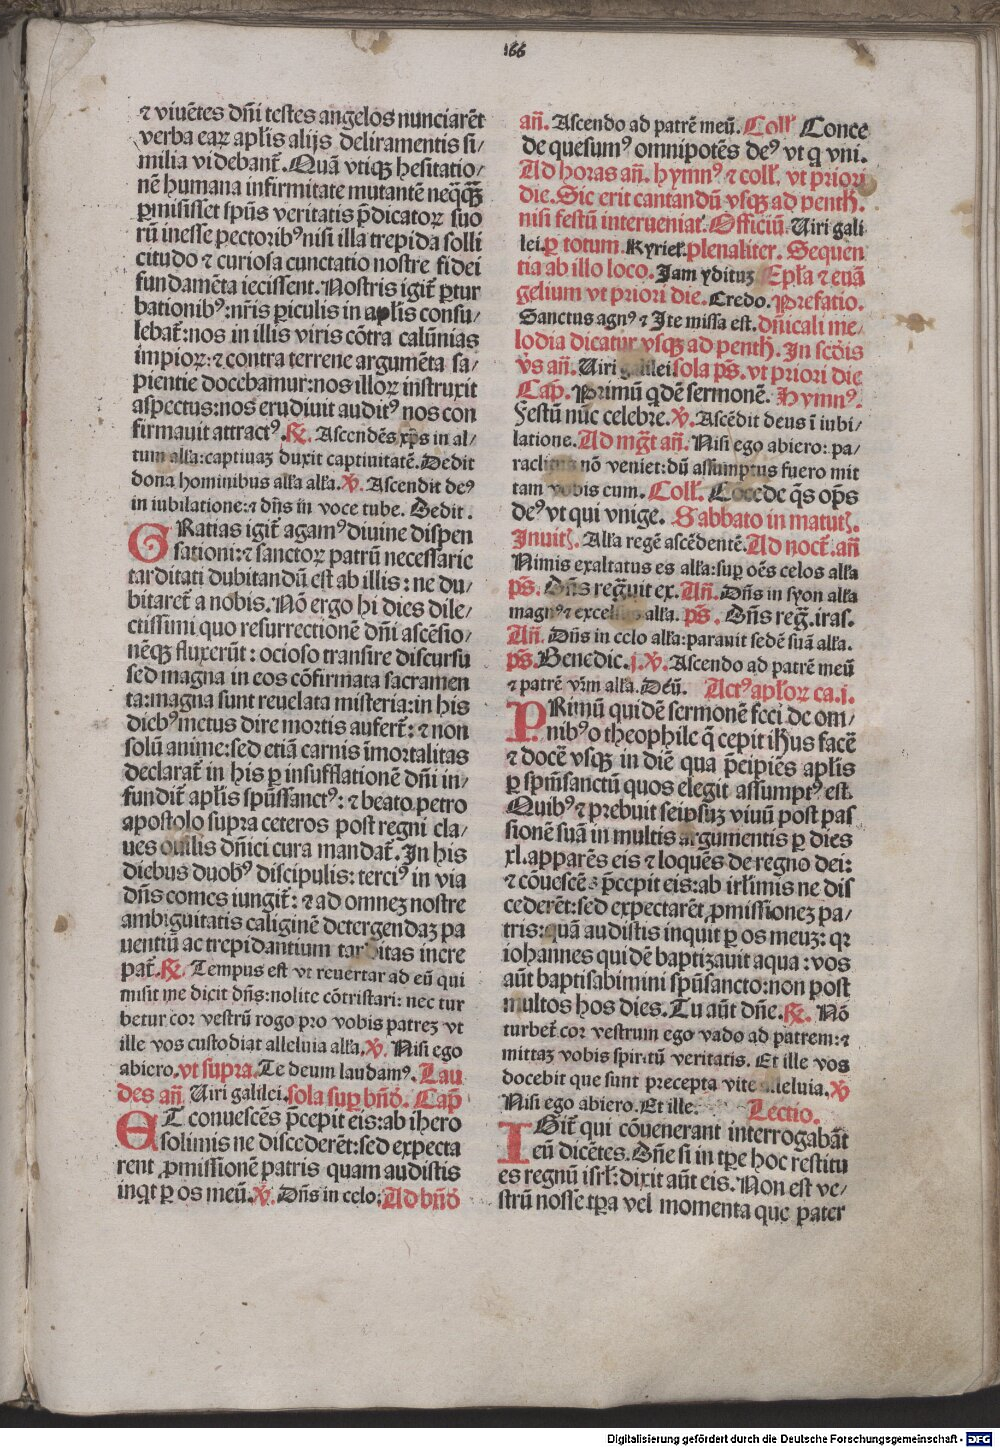 166
⁊ viuētes dn̄i testes angelos nunciarēt
verba eaꝝ apl̄is alijs deliramentis si/
milia videbant̄. Quā vtiqꝫ hesitatio/
nē humana infirmitate mutantē neq̄qꝫ̄
ꝑmisisset sp̄us veritatis p̄dicatoꝝ suo
rū inesse pectoribꝰ nisi illa trepida solli
citudo ⁊ curiosa cunctatio nostre fidei
fundamēta iecissent. Nostris igit̄ ꝑtur
bationibꝰ: nr̄is ꝑiculis in apl̄is consu/
lebat̄: nos in illis viris cōtra calūnias
impioꝝ: ⁊ contra terrene argumēta sa/
pientie docebamur: nos illoꝝ instruxit
aspectus: nos erudiuit auditꝰ nos con
firmauit attractꝰ. ℟. Ascendēs xp̄s in al/
tum alła: captiuaꝫ duxit captiuitatē. Dedit
dona hominibus alła alła. ℣. Ascendit deꝰ
in iubilatione: ⁊ dn̄s in voce tube. Dedit.
GRatias igit̄ agamꝰ diuine dispen
sationi: ⁊ sanctoꝝ patrū necessarie
tarditati dubitandū est ab illis: ne du/
bitaret̄ a nobis. Nō ergo hi dies dile/
ctissimi quo resurrectionē dn̄i ascēsio/
nēqꝫ fluxerūt: ocioso transire discursu
sed magna in eos cōfirmata sacramen
ta: magna sunt reuelata misteria: in his
diebꝰ metus dire mortis aufert̄: ⁊ non
solū anime: sed etiā carnis īmortalitas
declarat̄ in his ꝑ insufflationē dn̄i in/
fundit̄ apl̄is sp̄ussanctꝰ: ⁊ beato petro
apostolo supra ceteros post regni cla/
ues ouilis dn̄ici cura mandat̄. In his
diebus duobꝰ discipulis: terciꝰ in via
dn̄s comes iungit̄: ⁊ ad omnez nostre
ambiguitatis caliginē detergendaꝫ pa
uentiū ac trepidantium tarditas incre
pat̄. ℟. Tempus est vt reuertar ad eū qui
misit me dicit dn̄s: nolite cōtristari: nec tur
betur cor vestrū rogo pro vobis patreꝫ vt
ille vos custodiat alleluia alła. ℣. Nisi ego
abiero. vt supra. Te deum laudamꝰ. Lau
des an̄. Uiri galilei. sola suꝑ bn̄d̄. Cap̄
ET conuescēs p̄cepit eis: ab ihero
solimis ne discederēt: sed expecta
rent ꝓmissionē patris quam audistis
inqt ꝑ os meū. ℣. Dn̄s in celo. Ad bn̄d̄
an̄. Ascendo ad patrē meū. Coll̄ Conce
de quesumꝰ omnipotēs deꝰ vt q vni.
Ad horas an̄. hymnꝰ ⁊ coll̄. vt priori
die. Sic erit cantandū vsqꝫ ad penth̄.
nisi festū interueniat. Officiū. Uiri gali
lei. ꝑ totum. Kyriel̄. plenaliter. Sequen
tia ab illo loco. Jam ydituꝫ Epl̄a ⁊ euā
gelium vt priori die. Credo. Prefatio.
Sanctus agnꝰ ⁊ Ite missa est. dn̄icali me/
lodia dicatur vsqꝫ ad penth̄. In scd̄is
v̄s an̄. Uiri galilei sola ps̄. vt priori die
Cap̄. Primū qdē sermonē. Hymnꝰ.
Festū nūc celebre. ℣. Ascēdit deus ī iubi/
latione. Ad mḡt an̄. Nisi ego abiero: pa/
raclitus nō veniet: dū assumptus fuero mit
tam vobis eum. Coll̄. Cōcede q̄s op̄s
deꝰ vt qui vnige. Sabbato in matut̄.
Inuit̄. Alła regē ascēdentē. Ad noct̄. an̄
Nimis exaltatus es alła: suꝑ oēs celos alła
ps̄. Dn̄s reḡuit ex. An̄. Dn̄s in syon alła
magnꝰ ⁊ excelsus alła. ps̄. Dn̄s reḡ. iras.
An̄. Dn̄s in celo alła: parauit sedē suā alła.
ps̄. Benedic. j. ℣. Ascendo ad patrē meū
⁊ patrē vr̄m alła. Deū. Actꝰ apl̄oꝝ ca. i.
PRimū quidē sermonē feci de om/
nibꝰ o theophile q̄ cepit ih̄us facē
⁊ docē vsqꝫ in diē qua p̄cipiēs apl̄is
ꝑ sp̄m̄sanctū quos elegit assumptꝰ est.
Quibꝰ ⁊ prebuit seipsuꝫ viuū post pas
sionē suā in multis argumentis ꝑ dies
xl. apparēs eis ⁊ loquēs de regno dei:
⁊ cōuescēs p̄cepit eis: ab irl̄imis ne dis
cederēt: sed expectarēt ꝓmissionez pa/
tris: quā audistis inquit ꝑ os meuꝫ: qꝛ
iohannes quidē baptizauit aqua: vos
aūt baptisabimini sp̄usancto: non post
multos hos dies. Tu aūt dn̄e. ℟. Nō
turbet̄ cor vestrum ego vado ad patrem: ⁊
mittaꝫ vobis spiritū veritatis. Et ille vos
docebit que sunt precepta vite alleluia. ℣
Nisi ego abiero. Et ille. Lectio.
IGit̄ qui cōuenerant interrogabāt
eū dicētes. Dn̄e si in tꝑe hoc restitu
es regnū isrl̄: dixit aūt eis. Non est ve/
strū nosse tꝑa vel momenta que pater
Digitalisierung gefördert durch die Deutsche Forschungsgemeinschaft - DFG